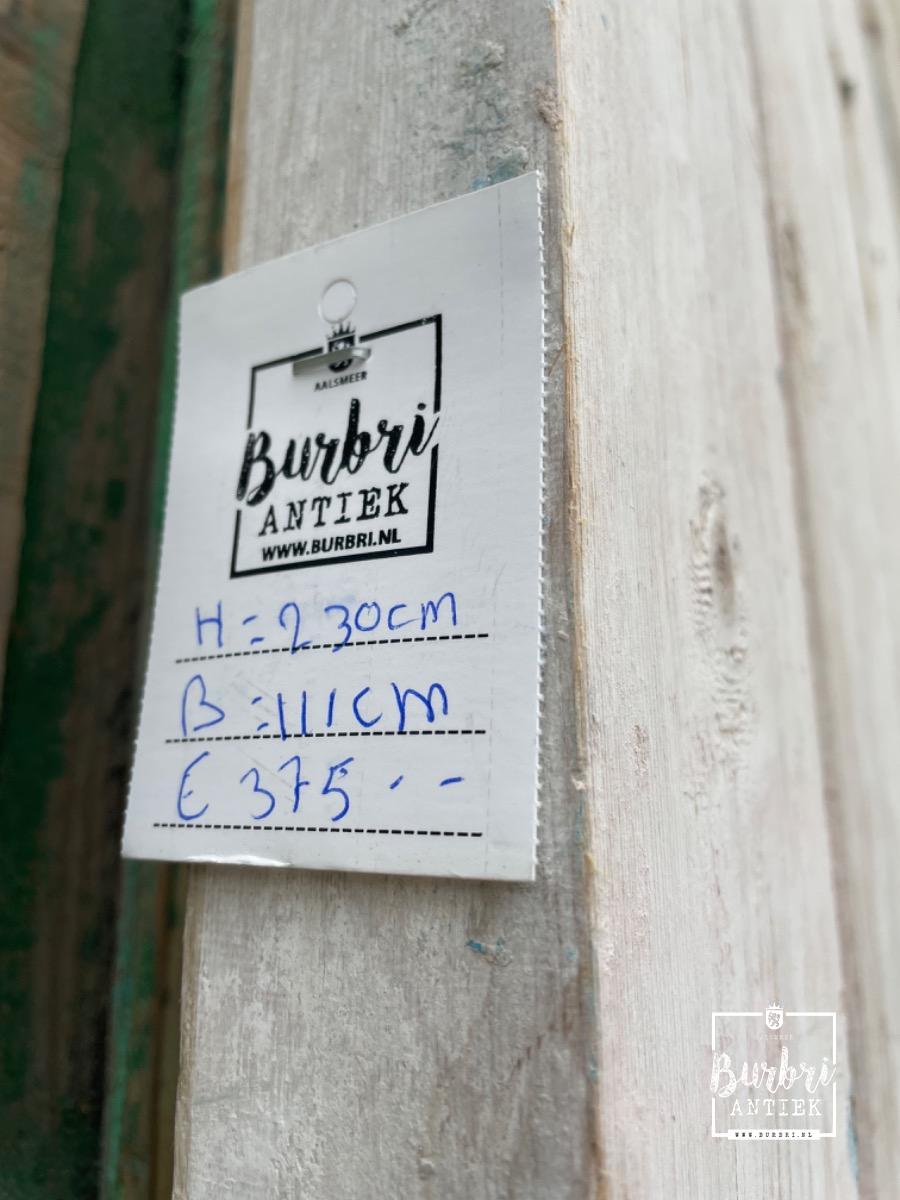 AALSMEER
Burbri
ANTIEK
WWW.BURBRI.NL
H = 230cm
B = 111cm
€ 375 . - -
Burbri
ANTIEK
WWW.BURBRI.NL